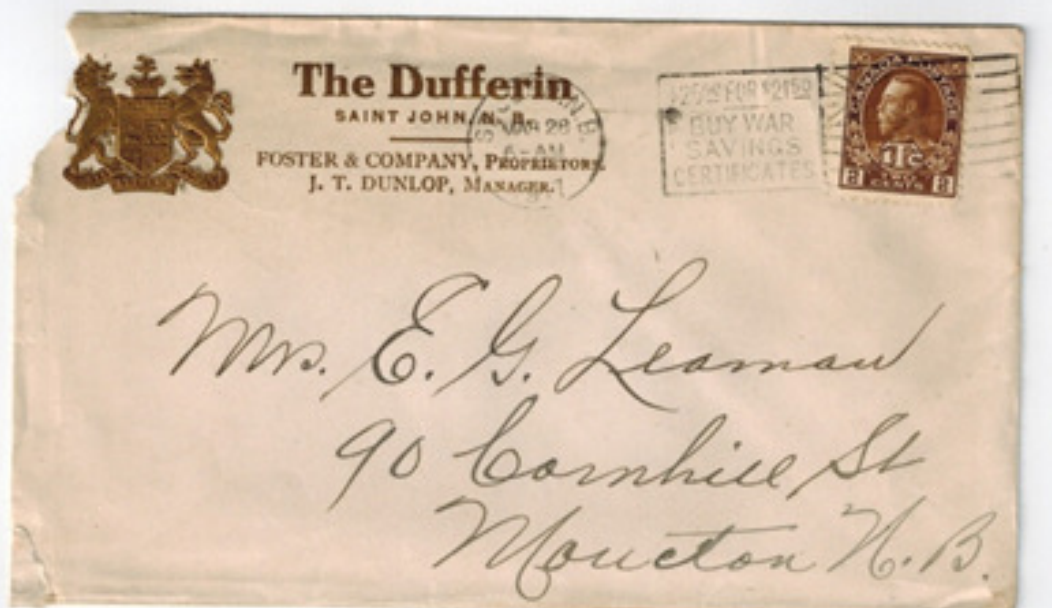 The Dufferin
SAINT JOHN, N. B.
FOSTER & COMPANY, PROPRIETORS.
J. T. DUNLOP, MANAGER.
N.B.
MAR 26
6-AM
$25.00 FOR $21.50
BUY WAR
SAVINGS
CERTIFICATES
CANADA POSTAGE
1Tc
2 CENTS 2
Mrs. E. G. Leaman
90 Cornhill St
Moncton N.B.